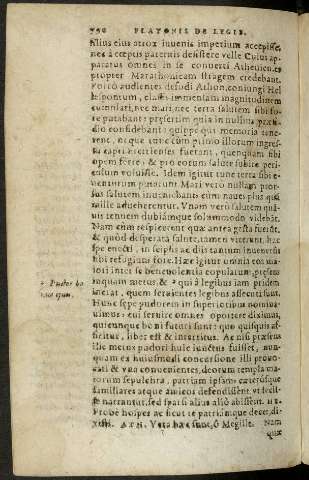 750 PLATONIS DE LEGIB.
filius eius atrox iuvenis imperium accepisset,
nec à cœptis paternis desistere velle Cuius ap-
paratus omnes in se converti Athenienses
propter Marathoniam stragem credebant.
Porrò audientes defodi Athon, coniungi Hel
lespontum, classis immensam magnitudinem
nec mari, nec terra salutem sibi fo-
re putabant: præsertim quia in nullius præsi-
dio confidebant: quippe qui memoria tene-
rent, neque tunc cùm primo illorum ingres-
su capti Eretrienses fuerant, quenquam sibi
opem ferre, & pro eorum salute subire peri-
culum voluisse. Idem igitur tunc terra sibi e-
venturum putabant. Mari verò nullam pror-
sus salutem cùm naves plus quàm
mille adveherentur. Unam verò salutem
vis tenuem dubiámque solummodo videbãt.
Nam cùm respicerent quæ antea gesta fuerãt,
& quòd desperata salute, tamen vicerant, hac
spe evecti, in seipsis ac diis tantùm invenerũt
sibi refugium fore. Hæc igitur omnia eos ma-
iori inter se benevolentia copularunt, præsens
inquam metus, & * qui à legibus iam pridem
inerat, quem servientes legibus assecuti sunt.
Hunc sæpe pudorem in superioribus nomina-
vimus: cui servire omnes oportere diximus,
quicunque boni futuri sunt: quo quisquis af-
ficitur, liber est & intrepidus. Ac nisi præsens
ille metus pudori huic iunctus fuisset, nun-
quam ex huiusmodi concursione illi provo-
cati & una convenientes, deorum templa ma-
iorum sepulchra, patriam ipsam cæterósque
familiares atque amicos defendissent ut defen-
se narrantur, sed sparsi alius aliò abiissent. ME.
Probè hospes ac sicut te patriámque decet, di-
xisti. ATH. Vera hæc sunt, ô Megille. Nam
quæ
* Pudor bo
nus